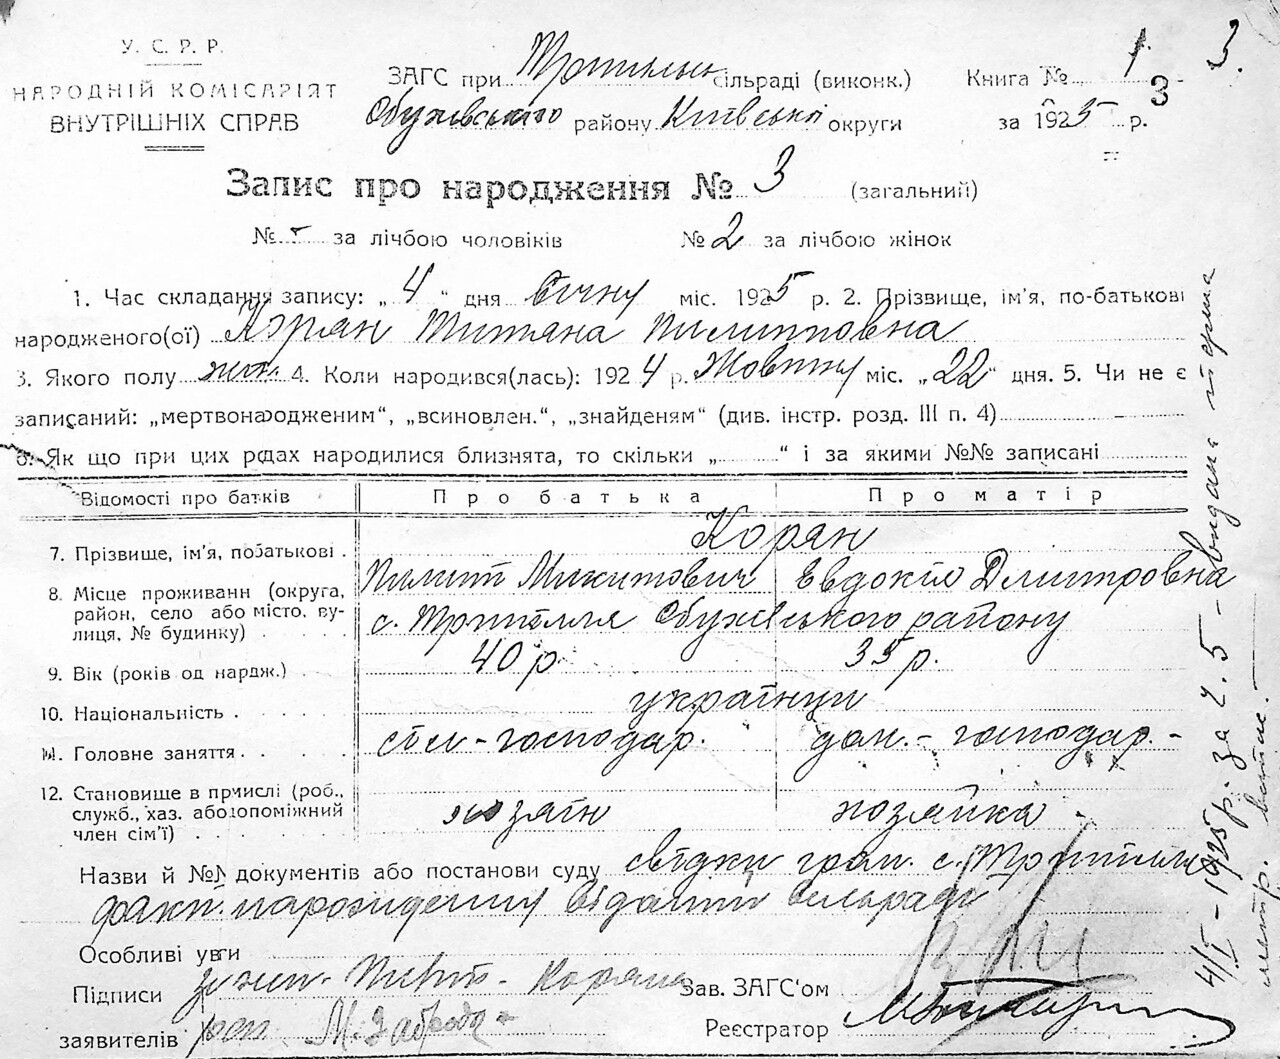 У. С. Р. Р.
НАРОДНІЙ КОМІСАРІЯТ
ВНУТРІШНІХ СПРАВ
ЗАГС при сільраді (виконк.)
Обухівського району Київської округи
Книга № 1
3
3.
за 1925 р.
Запис про народження № 3 (загальний)
№ - за лічбою чоловіків № 2 за лічбою жінок
1. Час складання запису: „ 4 " дня січня міс. 1925 р. 2. Прізвище, ім'я, по-батькові
народженого(ої) Корян Титяна Пилиповна
3. Якого полу жін. 4. Коли народився(лась): 1924 р. Жовтня міс. „22" дня. 5. Чи не є
записаний: „мертвонародженим", „всиновлен.", „знайденям" (див. інстр. розд. III п. 4)
6. Як що при цих родах народилися близнята, то скільки „ " і за якими №№ записані
Відомості про батків Про батька Про матір
7. Прізвище, ім'я, побатькові . Корян
Пилип Микитович Евдокія Дмитровна
8. Місце проживанн (округа, район, село або місто, вулиця, № будинку) с. Трипілля Обухівського району
9. Вік (років од нардж.) 40 р. 35 р.
10. Національність українци
11. Головне заняття сіл-господар. дом.-господар.-
12. Становище в прмислі (роб., служб., хаз. або допоміжний член сім'ї) хозяін хозяйка
Назви й №№ документів або постанови суду свідки гром. с. Трипілля
факт. народження сельради
Особливі уваги
Підписи Коряна
заявителів М. Заброда
Зав. ЗАГС'ом
Реєстратор
4/I-1925 р. за № 5 - видана
метр.